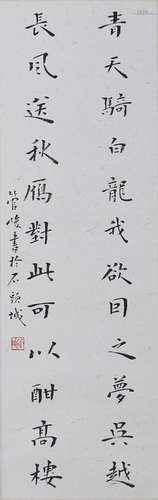 青天騎白龍我欲因之夢吳越
長風送秋雁對此可以酣高樓
管峻書於石頭城